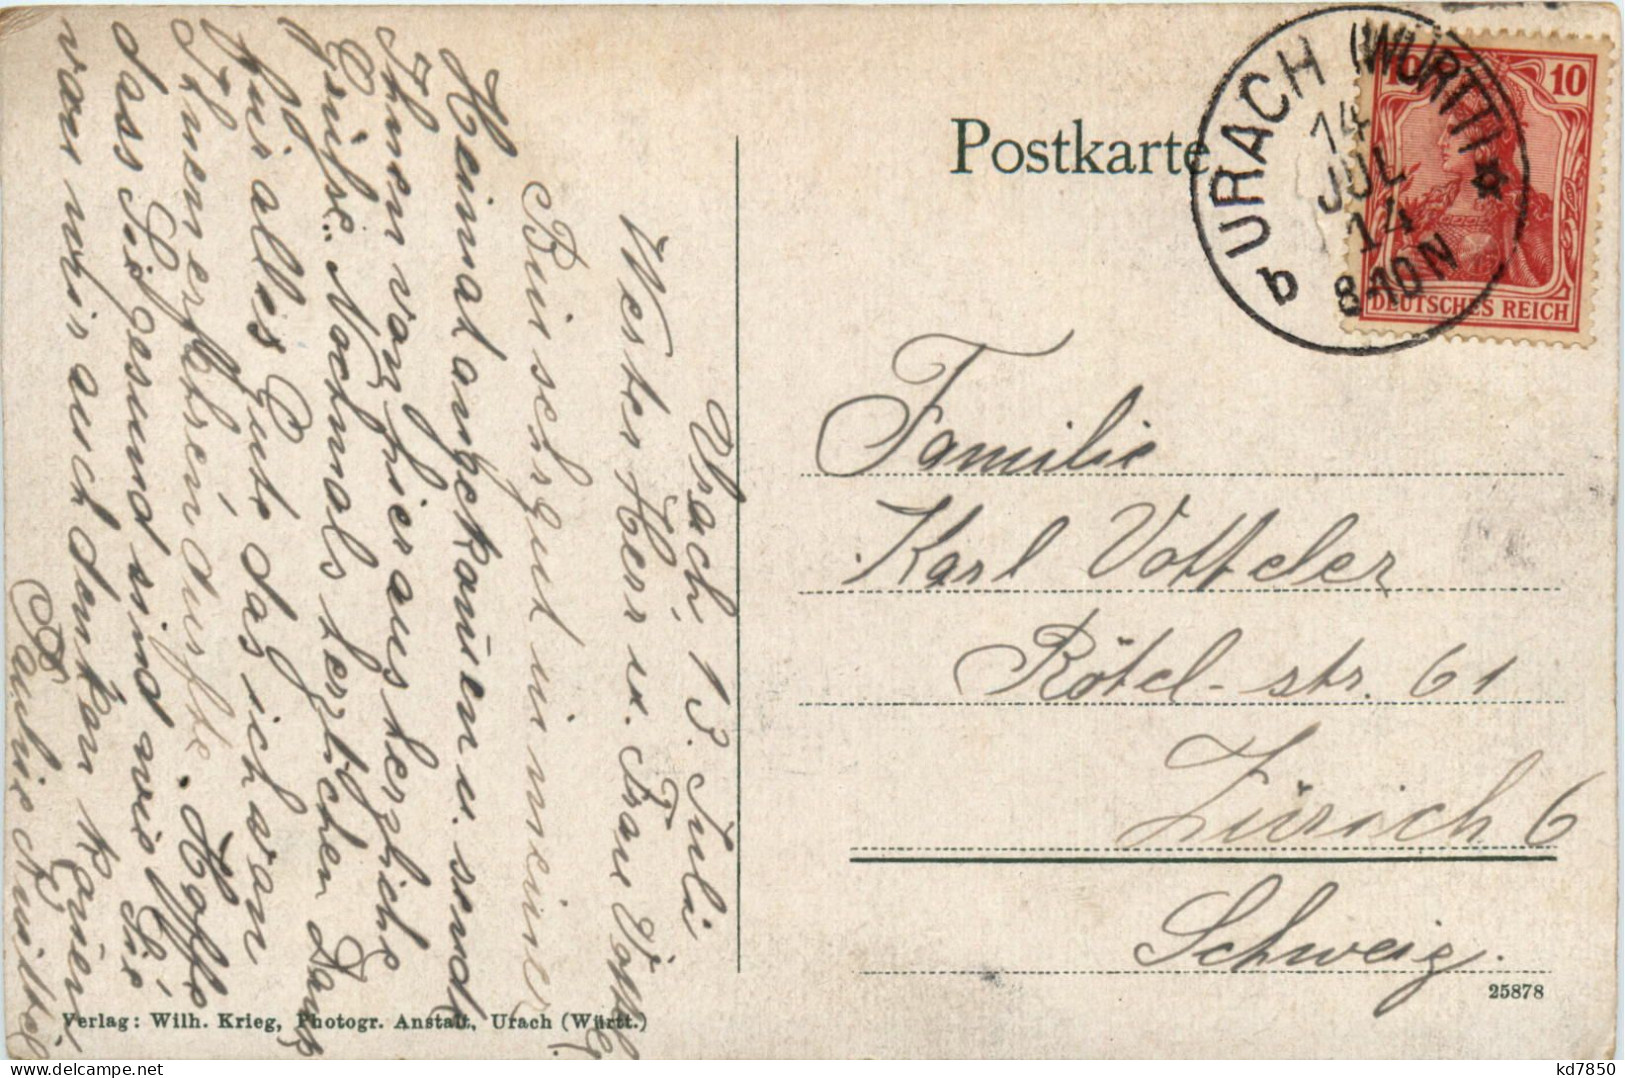 Postkarte
URACH (WÜRTT)
14
JUL
14
8-10N
b
10
DEUTSCHES REICH
Familie
Karl Votteler
Rötel-str. 61
Zürich 6
Schweiz.
25878
Verlag: Wilh. Krieg, Photogr. Anstalt, Urach (Württ.)
Urach, 13. Juli
Werter Herr u. Frau
Bin sehr gut in meiner
Heimat angekomen u. sende
Ihnen von hier aus herzliche
Grüße. Nochmals herzlichen Dank
für alles Gute das ich van
Ihnen erfahren durfte. Hoffe
dass Sie gesund sind wie Sie
van mir auch denken können
kd7850